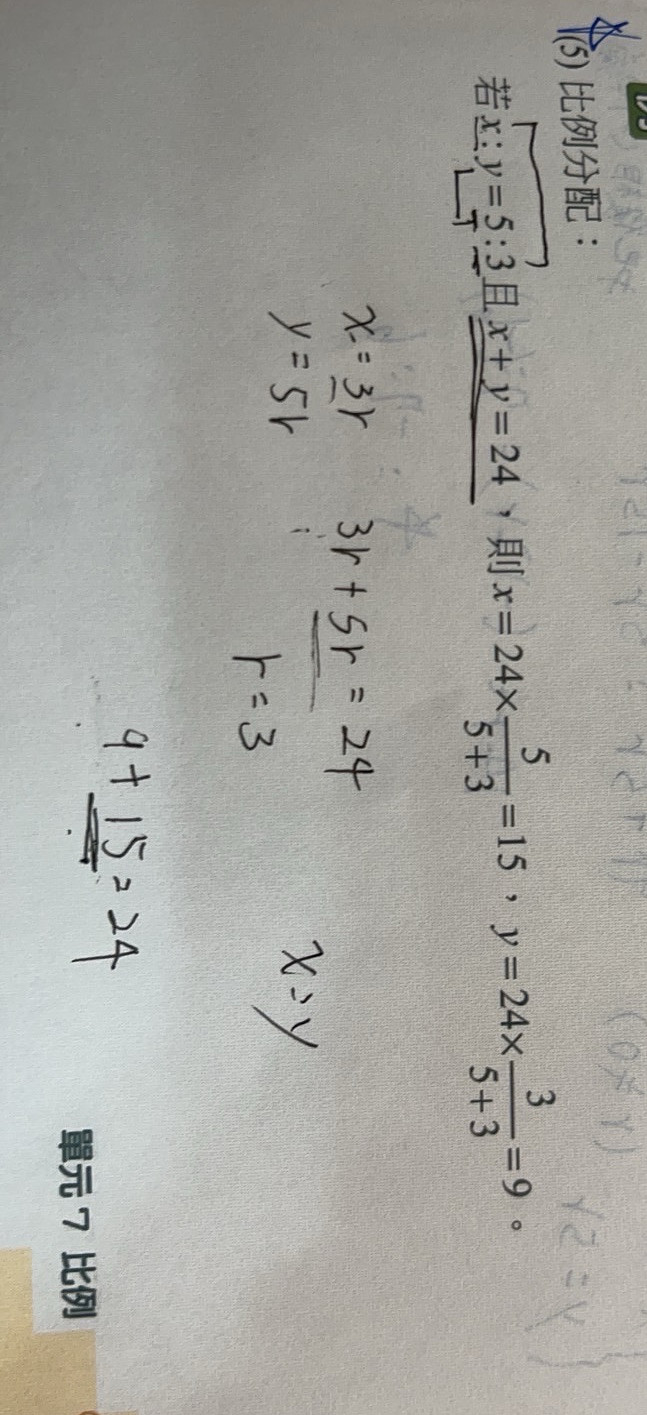 (5) 比例分配：
若x:y=5:3且x+y=24，則x=24×5/(5+3)=15，y=24×3/(5+3)=9。
x=3r 3r+5r=24
y=5r r=3
x=y
9+15=24
單元 7 比例